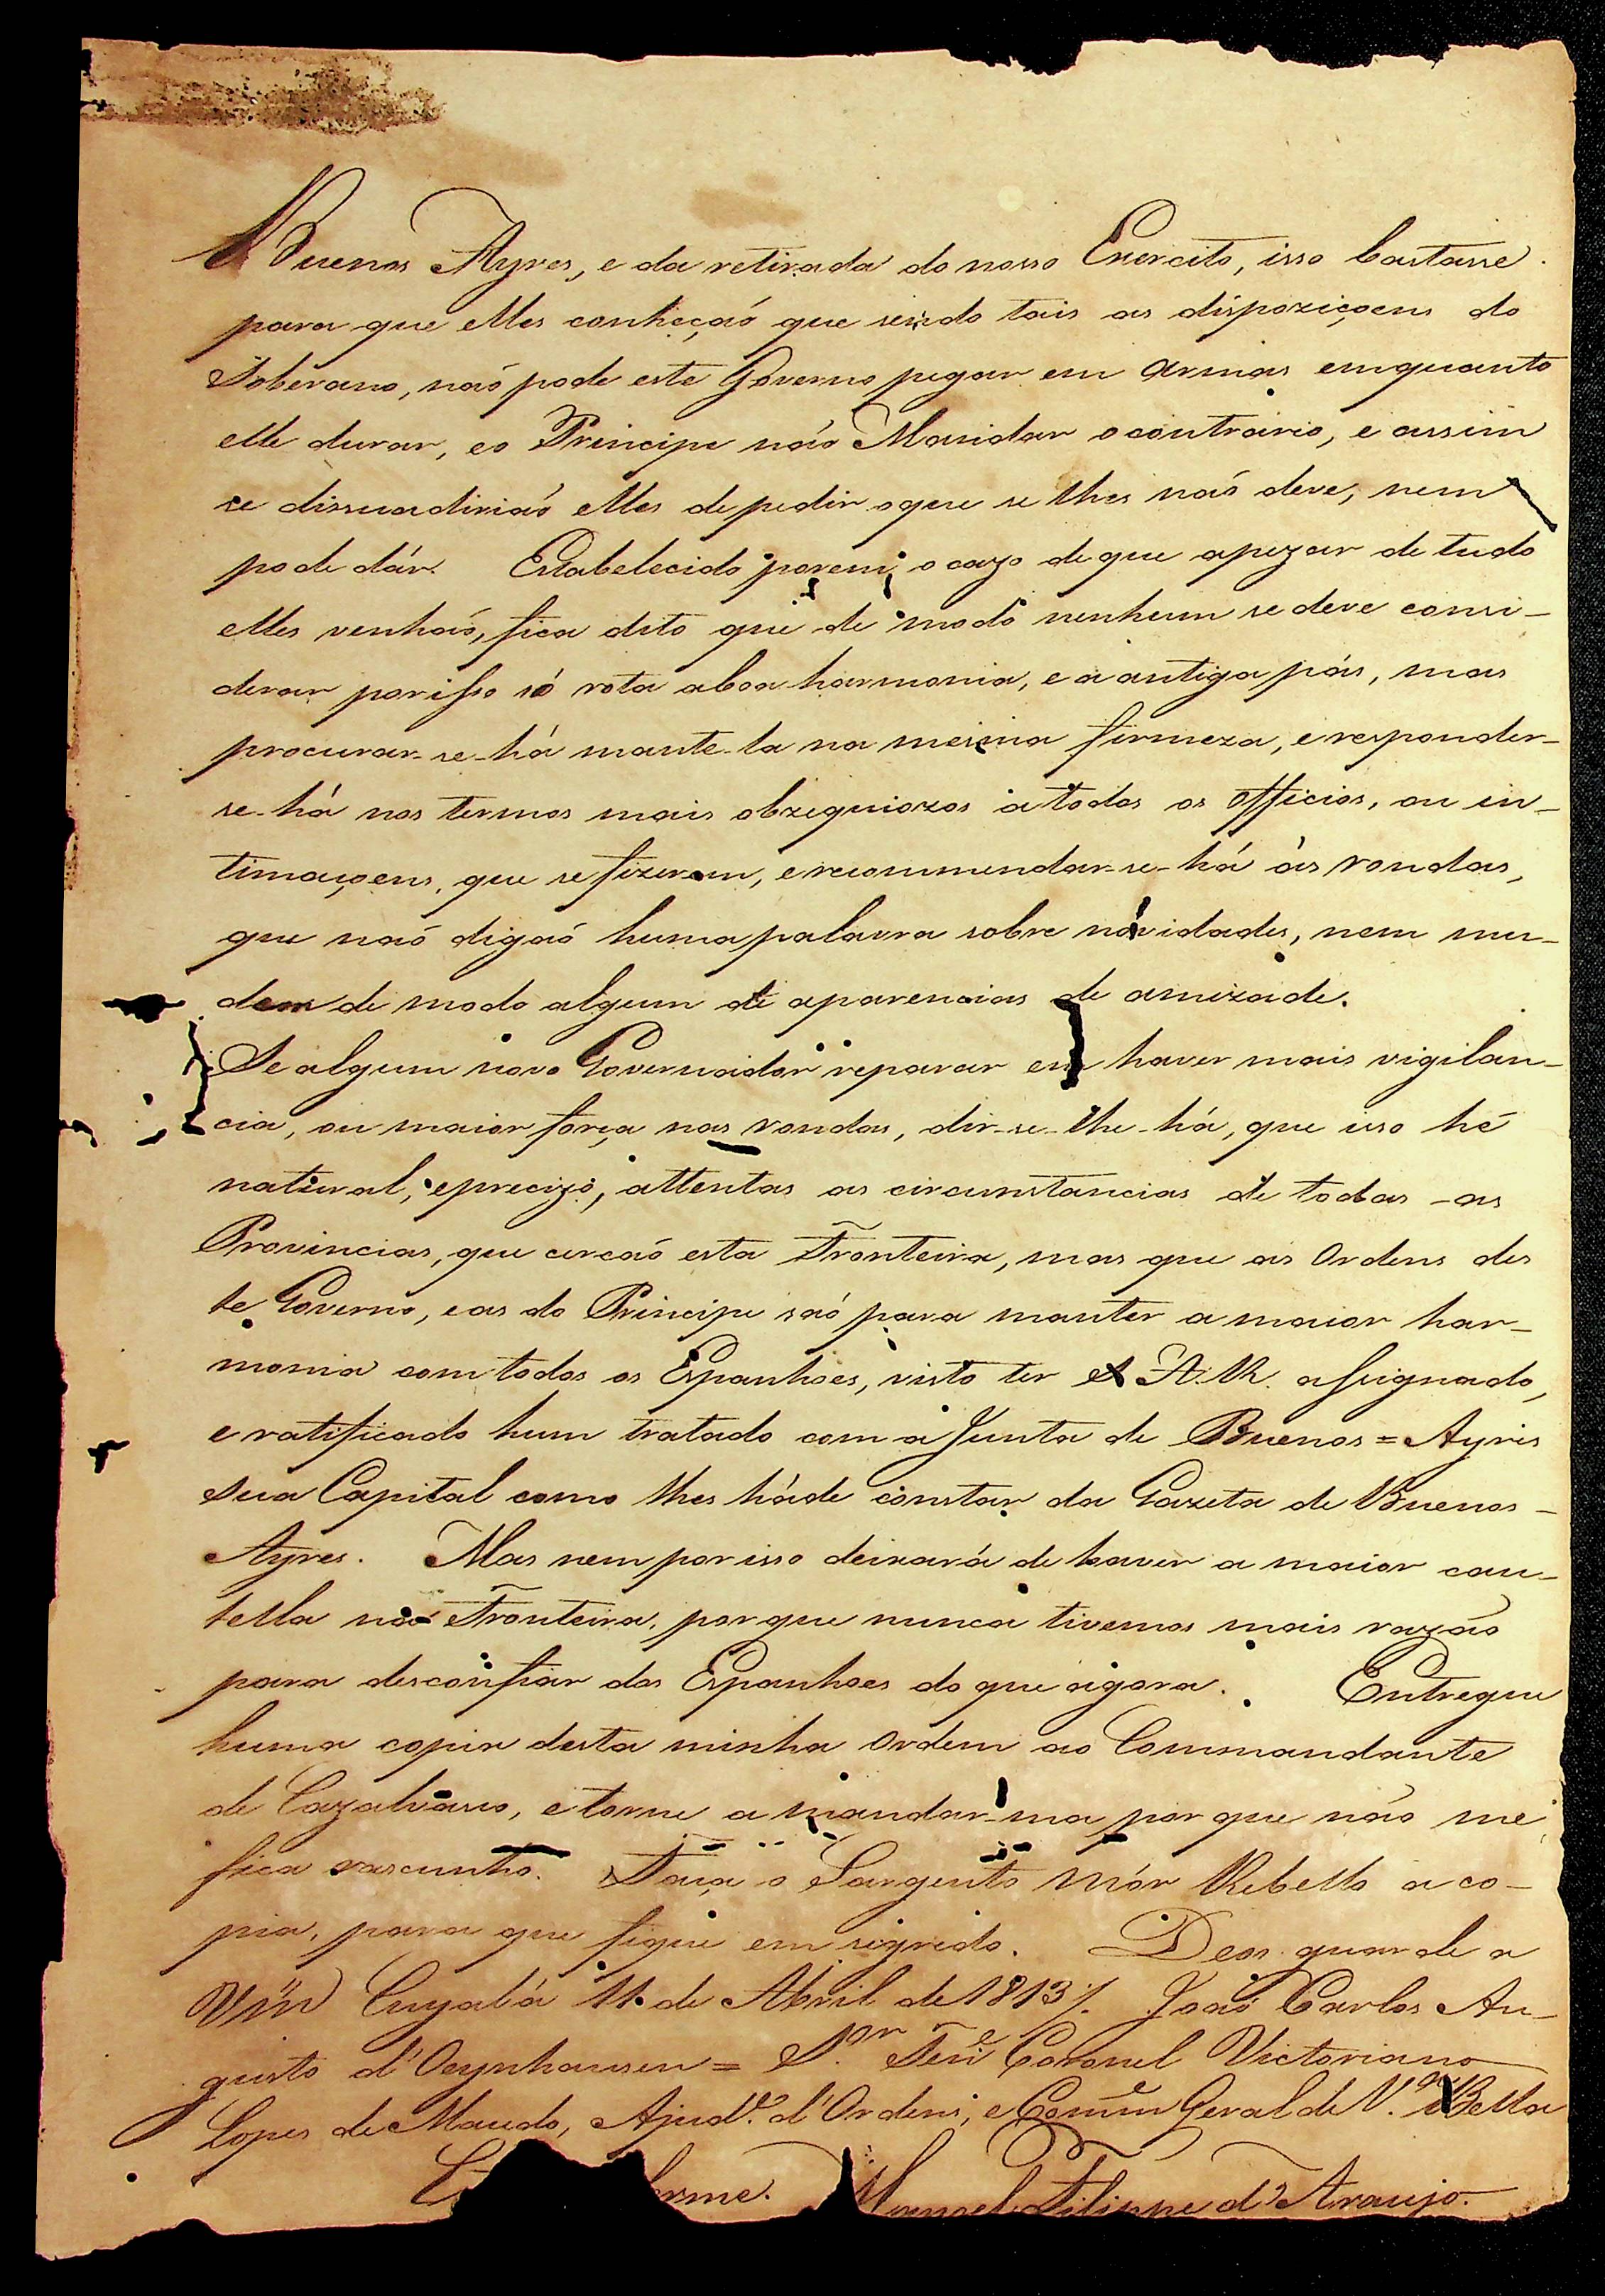 Buenos Ayres, e da retirada do nosso Exercito, isso bastasse
para que elles conheçaõ que sendo tais as dispoziçoens do
Soberano, naõ pode este Governo pegar em Armas emquanto
elle durar, e o Principe não Mandar o contrario, e assim
se dissuadiriaõ elles de pedir o que se lhes naõ deve, nem
pode dár. Estabelecido porem, o cazo de que apezar de tudo
elles venhaõ, fica dito que de modo nenhum se deve consi-
derar por isso só rota a boa harmonia, e a antiga pás, mas
procurar-se-há mante-la na mesma firmeza, e responder-
se-há nos termos mais obzequiozos a todos os Officios, ou in-
timaçoens, que se fizerem, e recommendar-se-há às rondas,
que naõ digaõ huma palavra sobre novidades, nem mu-
dem de modo algum de aparencias de amizade.
Se algum novo Governador reparar em haver mais vigilan-
cia, ou maior força nas rondas, dir-se-lhe-há, que isso hé
natural, e precizo, attentas as circunstancias de todas as
Provincias, que cercaõ esta Fronteira, mas que as Ordens des
te Governo, e as do Principe saõ para manter a maior har-
monia com todos os Espanhoes, visto ter S. A. R. assignado,
e ratificado hum tratado com a Junta de Buenos=Ayres
sua Capital como lhes háde constar da Gazeta de Buenos-
Ayres. Mas nem por isso deixará de haver a maior cau-
tella na Fronteira, porque nunca tivemos mais razão
para desconfiar dos Espanhoes do que agora. Entregue
huma copia desta minha Ordem ao Commandante
de Cazalvasco, e torne a mandar-ma por que não me
fica rascunho. Faça o Sargento Mór Rebello a co-
pia, para que fique em segredo. Deos guarde a
Vm̃ Cuyabá 11 de Abril de 1813 /. Joaõ Carlos Au-
gusto d'Oeynhausen = S.or Ten.e Coronel Victoriano
Lopes de Macedo, Ajud.e d'Ordens, e Com.e Geral de V.a Bella
Manoel Filippe d'Araujo.